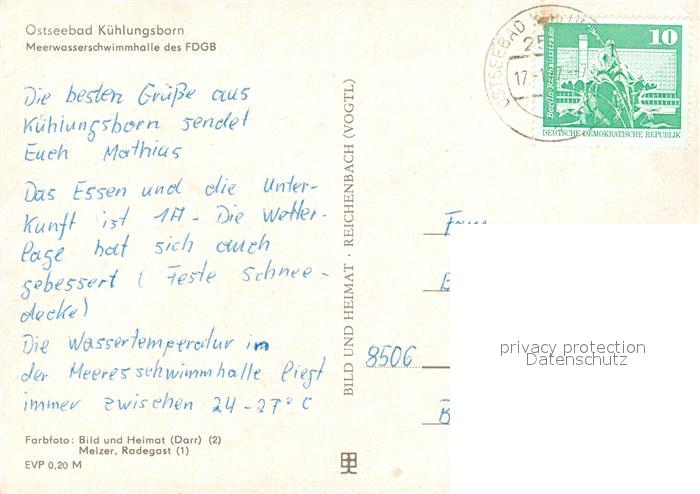 Ostseebad Kühlungsborn
Meerwasserschwimmhalle des FDGB
Die besten Grüße aus
Kühlungsborn sendet
Euch Mathias
Das Essen und die Unter-
kunft ist 1A - Die Wetter-
lage hat sich auch
gebessert ( Feste Schnee-
decke)
Die Wassertemperatur in
der Meeresschwimmhalle liegt
immer zwischen 24-27°C
Farbfoto: Bild und Heimat (Darr) (2)
Melzer, Radegast (1)
EVP 0,20 M
BILD UND HEIMAT · REICHENBACH (VOGTL)
OSTSEEBAD
25
17.
10
Berlin, Rathausstraße
DEUTSCHE DEMOKRATISCHE REPUBLIK
8506
privacy protection
Datenschutz